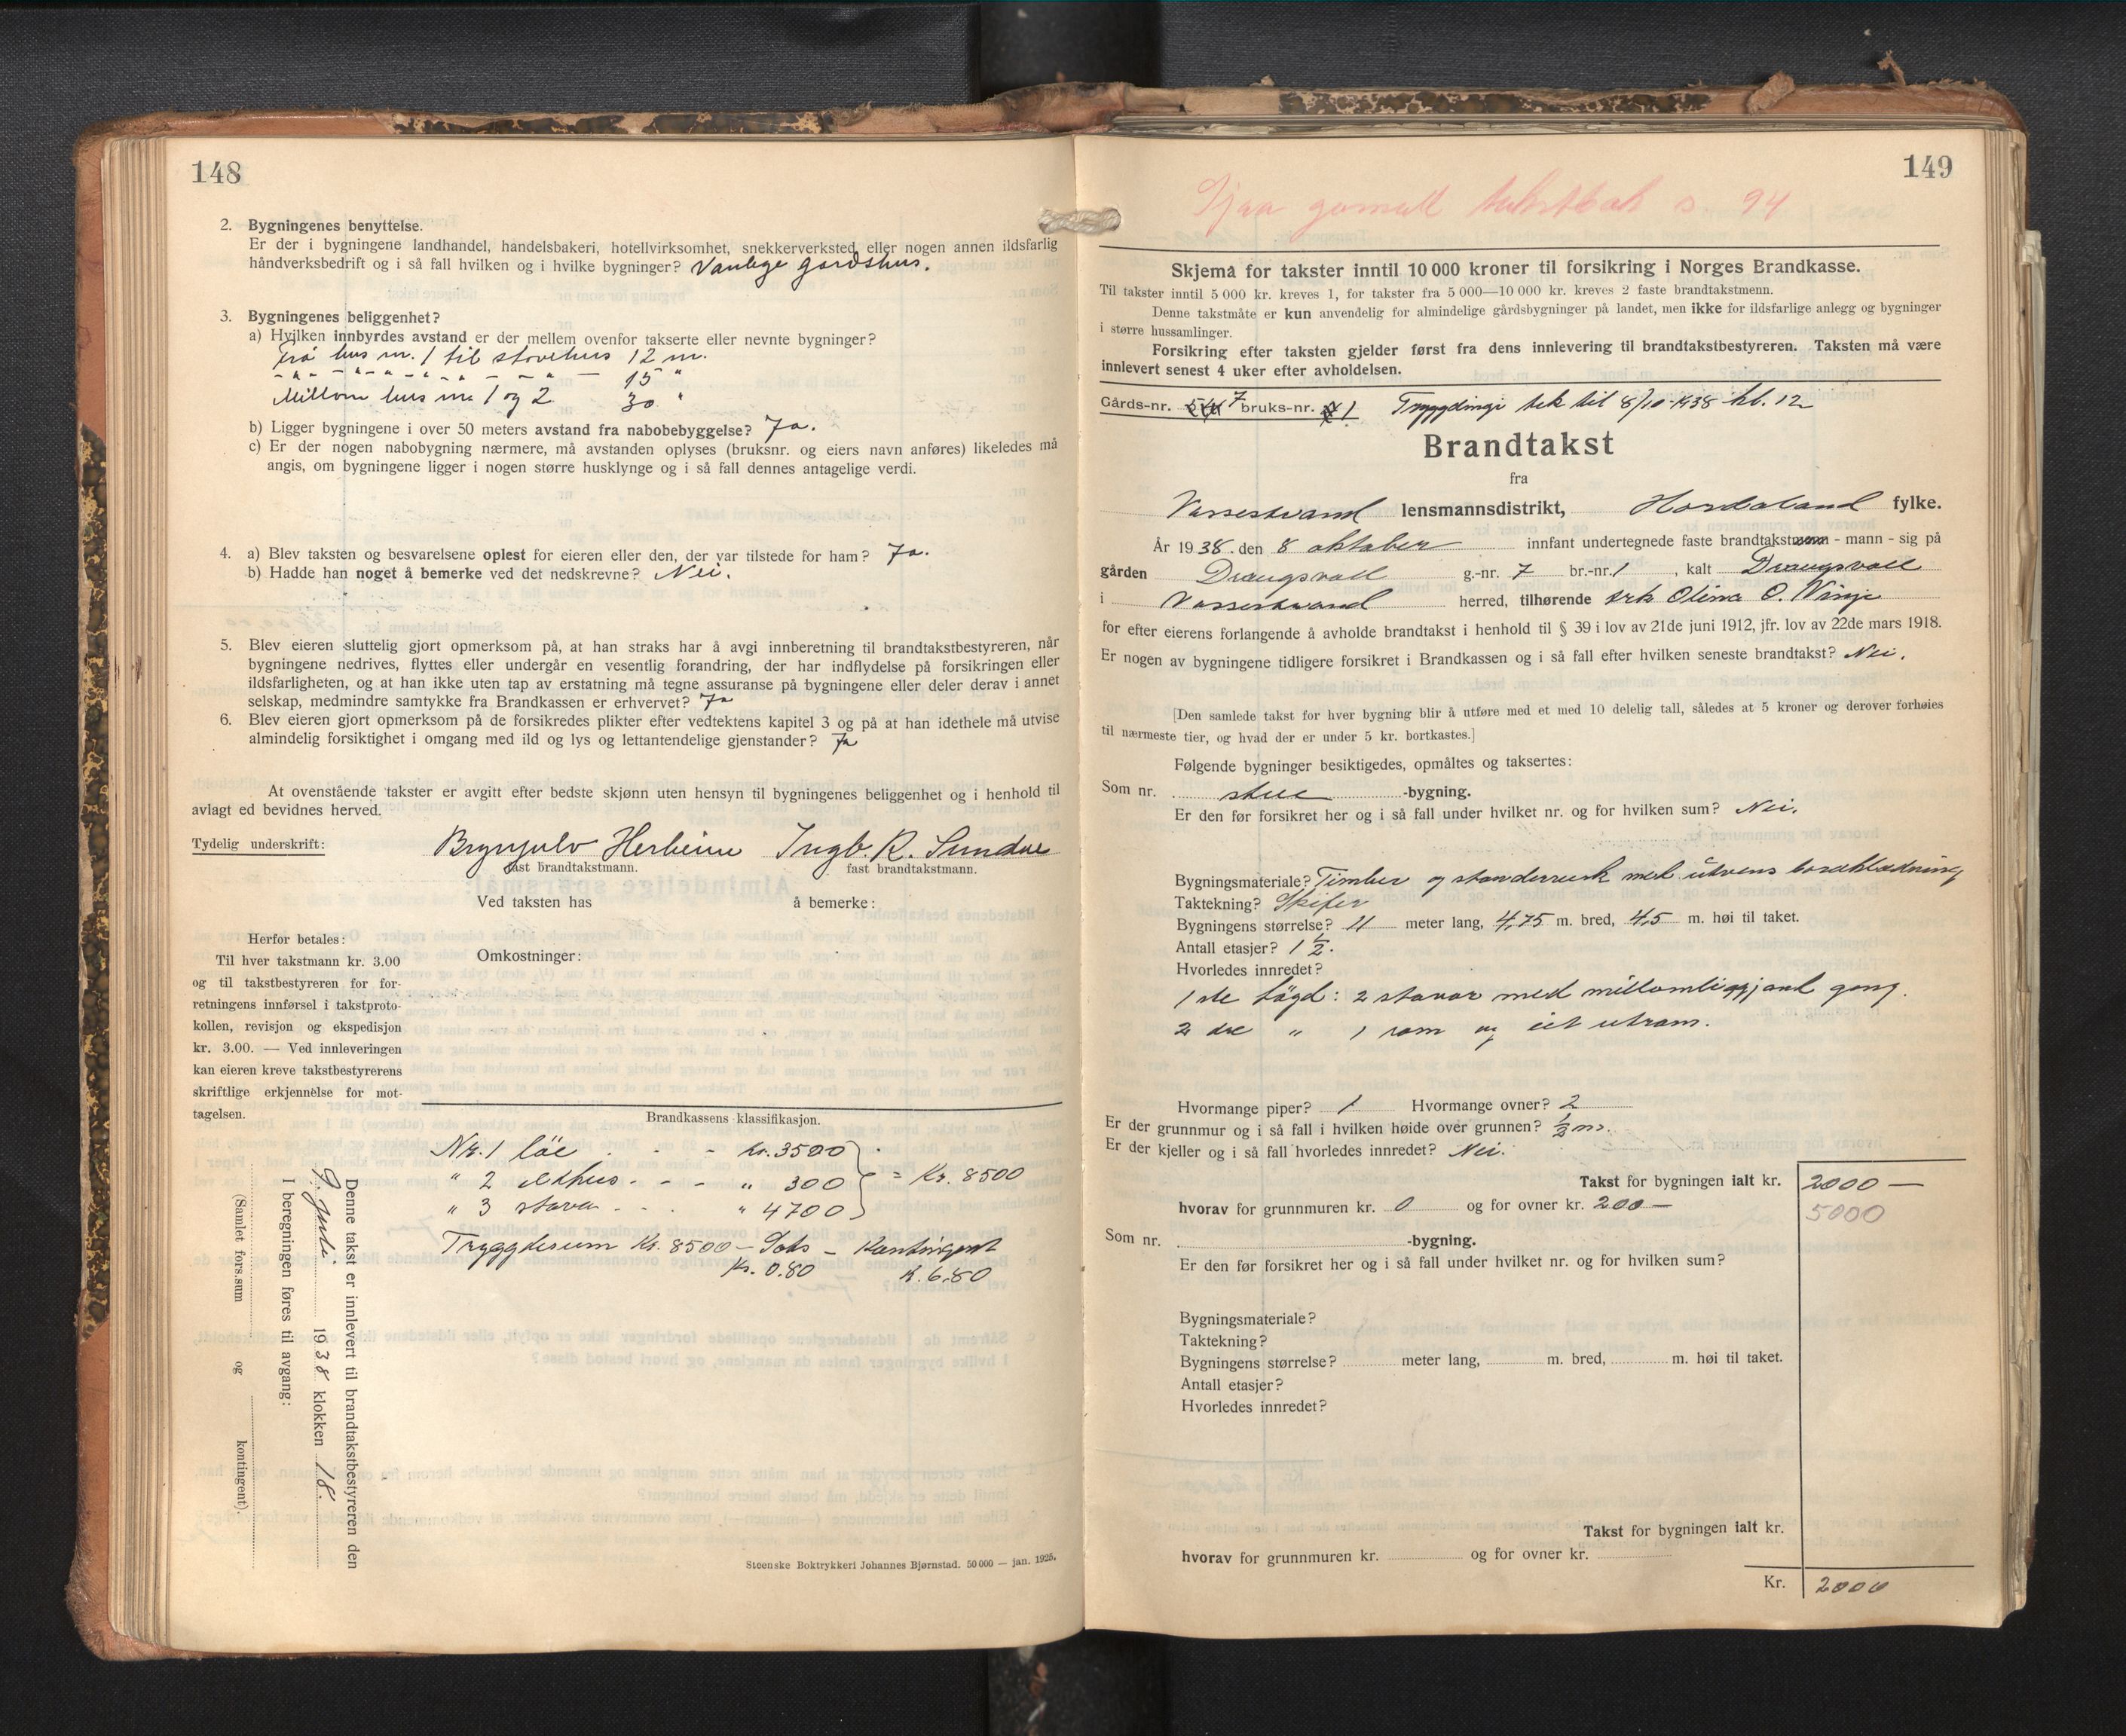 148
2. Bygningenes benyttelse.
Er der i bygningene landhandel, handelsbakeri, hotellvirksomhet, snekkerverksted eller nogen annen ildsfarlig
håndverksbedrift og i så fall hvilken og i hvilke bygninger? Vanlege gardshus.
3. Bygningenes beliggenhet?
a) Hvilken innbyrdes avstand er der mellem ovenfor takserte eller nevnte bygninger?
Frå hus nr. 1 til stovehus 12 m.
15 "
Millom hus nr 1 og 2 30 "
b) Ligger bygningene i over 50 meters avstand fra nabobebyggelse? Ja.
c) Er der nogen nabobygning nærmere, må avstanden oplyses (bruksnr. og eiers navn anføres) likeledes må
angis, om bygningene ligger i nogen større husklynge og i så fall dennes antagelige verdi.
4. a) Blev taksten og besvarelsene oplest for eieren eller den, der var tilstede for ham? Ja.
b) Hadde han noget å bemerke ved det nedskrevne? Nei.
5. Blev eieren sluttelig gjort opmerksom på, at han straks har å avgi innberetning til brandtakstbestyreren, når
bygningene nedrives, flyttes eller undergår en vesentlig forandring, der har indflydelse på forsikringen eller
ildsfarligheten, og at han ikke uten tap av erstatning må tegne assuranse på bygningene eller deler derav i annet
selskap, medmindre samtykke fra Brandkassen er erhvervet? Ja
6. Blev eieren gjort opmerksom på de forsikredes plikter efter vedtektens kapitel 3 og på at han idethele må utvise
almindelig forsiktighet i omgang med ild og lys og lettantendelige gjenstander? Ja
At ovenstående takster er avgitt efter bedste skjønn uten hensyn til bygningenes beliggenhet og i henhold til
avlagt ed bevidnes herved.
Tydelig underskrift: Brynjulv Herheim Ingb. R. Sundve
fast brandtakstmann. fast brandtakstmann.
Ved taksten has å bemerke:
Herfor betales:
Til hver takstmann kr. 3.00
og til takstbestyreren for for-
retningens innførsel i takstproto-
kollen, revisjon og ekspedisjon
kr. 3.00. — Ved innleveringen
kan eieren kreve takstbestyrerens
skriftlige erkjennelse for mot-
tagelsen.
Omkostninger:
Brandkassens klassifikasjon.
Nr. 1 löe . - - kr. 3500
" 2 eldhus - - - " 300 = Kr. 8500
" 3 stova - . . " 4700
Tryggdesum Kr. 8500 - Sats - Kontingent
Kr. 0.80 K. 6.80
Denne takst er innlevert til brandtakstbestyreren den
9. juli 1938 klokken 18.
I beregningen føres til avgang:
(Samlet fors.sum og kontingent)
Steenske Boktrykkeri Johannes Bjørnstad. 50 000 — jan. 1925.
149
Sjaa gamall takstbok s. 94
Skjema for takster inntil 10 000 kroner til forsikring i Norges Brandkasse.
Til takster inntil 5 000 kr. kreves 1, for takster fra 5 000—10 000 kr. kreves 2 faste brandtakstmenn.
Denne takstmåte er kun anvendelig for almindelige gårdsbygninger på landet, men ikke for ildsfarlige anlegg og bygninger
i større hussamlinger.
Forsikring efter taksten gjelder først fra dens innlevering til brandtakstbestyreren. Taksten må være
innlevert senest 4 uker efter avholdelsen.
Gårds-nr. 7 bruks-nr. 1 Tryggdingi tek til 8/10-1938 kl. 12
Brandtakst
fra
Vossestrand lensmannsdistrikt, Hordaland fylke.
År 1938. den 8 oktober innfant undertegnede faste brandtakstmenn - mann - sig på
gården Draugsvoll g.-nr. 7 br.-nr. 1, kalt Draugsvoll
i Vossestrand herred, tilhørende Olina O. Vinje
for efter eierens forlangende å avholde brandtakst i henhold til § 39 i lov av 21de juni 1912, jfr. lov av 22de mars 1918.
Er nogen av bygningene tidligere forsikret i Brandkassen og i så fall efter hvilken seneste brandtakst? Nei.
[Den samlede takst for hver bygning blir å utføre med et med 10 delelig tall, således at 5 kroner og derover forhøies
til nærmeste tier, og hvad der er under 5 kr. bortkastes.]
Følgende bygninger besiktigedes, opmåltes og taksertes:
Som nr. stue -bygning.
Er den før forsikret her og i så fall under hvilket nr. og for hvilken sum? Nei.
Bygningsmateriale? Timber og standerverk med utvens bordklædning
Taktekning? Skifer
Bygningens størrelse? 11 meter lang, 4,75 m. bred, 4,5 m. høi til taket.
Antall etasjer? 1 1/2.
Hvorledes innredet?
1ste högd: 2 stovor med millomliggjand gong.
2dre " 1 rom og eit utrom.
Hvormange piper? 1 Hvormange ovner? 2
Er der grunnmur og i så fall i hvilken høide over grunnen? 1/2 m.
Er der kjeller og i så fall hvorledes innredet? Nei.
Takst for bygningen ialt kr. 2000 —
hvorav for grunnmuren kr. 0 og for ovner kr. 200 — 5000
Som nr. -bygning.
Er den før forsikret her og i så fall under hvilket nr. og for hvilken sum?
Bygningsmateriale?
Taktekning?
Bygningens størrelse? meter lang, m. bred, m. høi til taket.
Antall etasjer?
Hvorledes innredet?
Takst for bygningen ialt kr.
hvorav for grunnmuren kr. og for ovner kr.
Kr. 2000